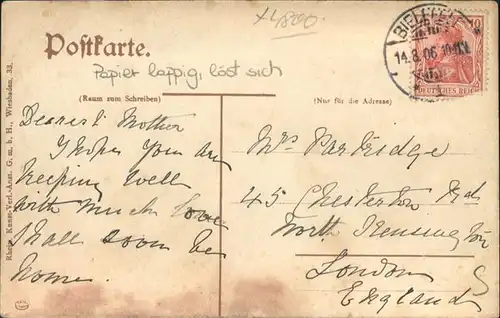 x4800
Postkarte.
Papier lappig, löst sich
(Raum zum Schreiben)
(Nur für die Adresse)
BIELEFELD
14.8.06
10
DEUTSCHES REICH
Dearest Mother
I hope you are
keeping well
with much love
shall soon be
home.
Mrs Partridge
45 Chesterton Rd
North Kensington
London
England
Rhein. Kunst-Verl.-Anst. G. m. b. H., Wiesbaden. 33.